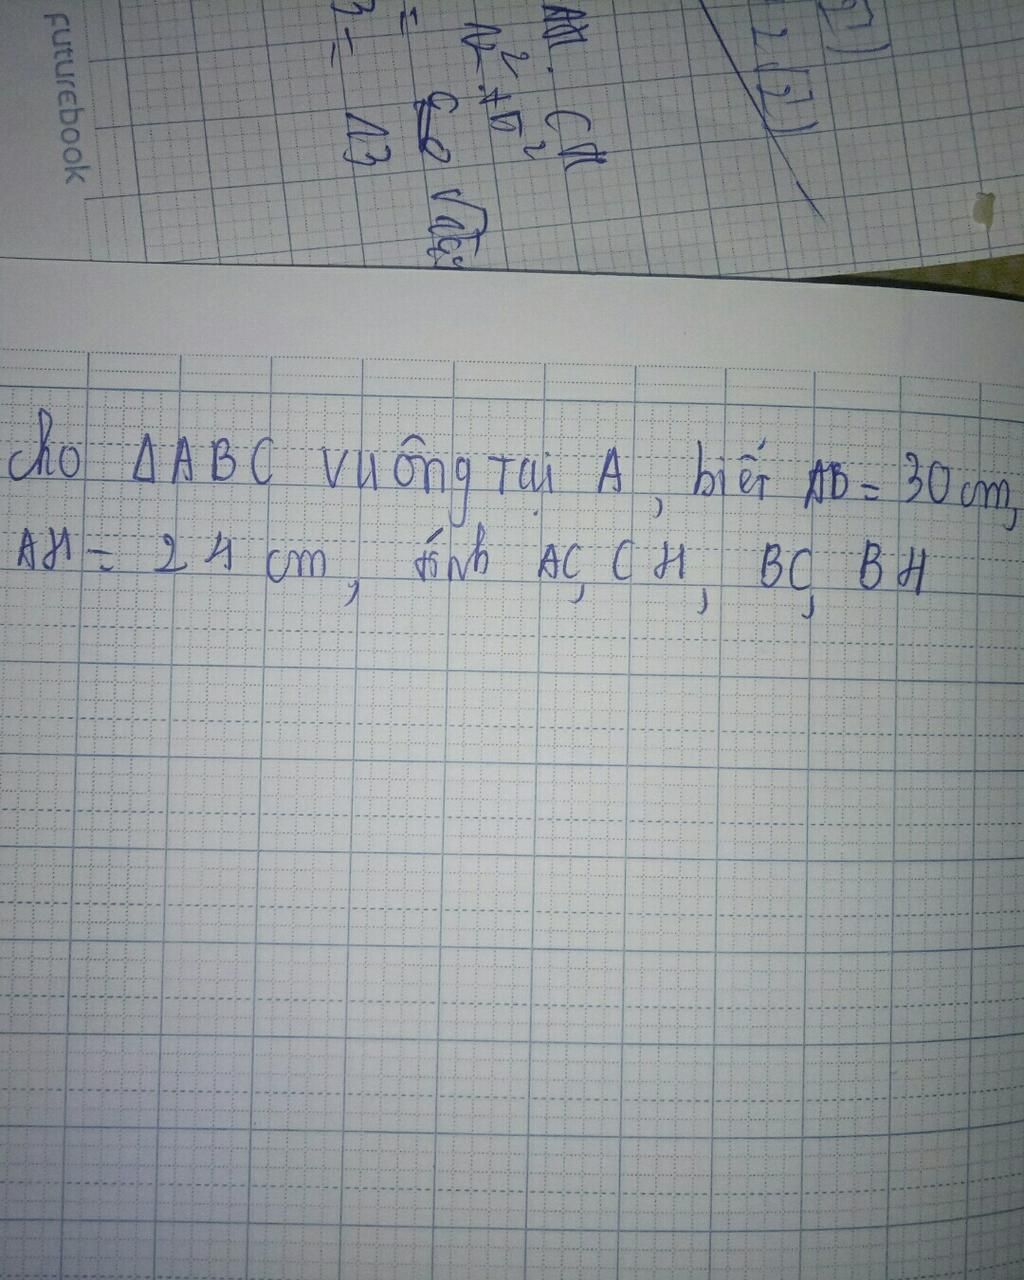 Futurebook
cho ΔABC vuông tại A, biết AB = 30 cm,
AH = 24 cm, tính AC, CH, BC, BH